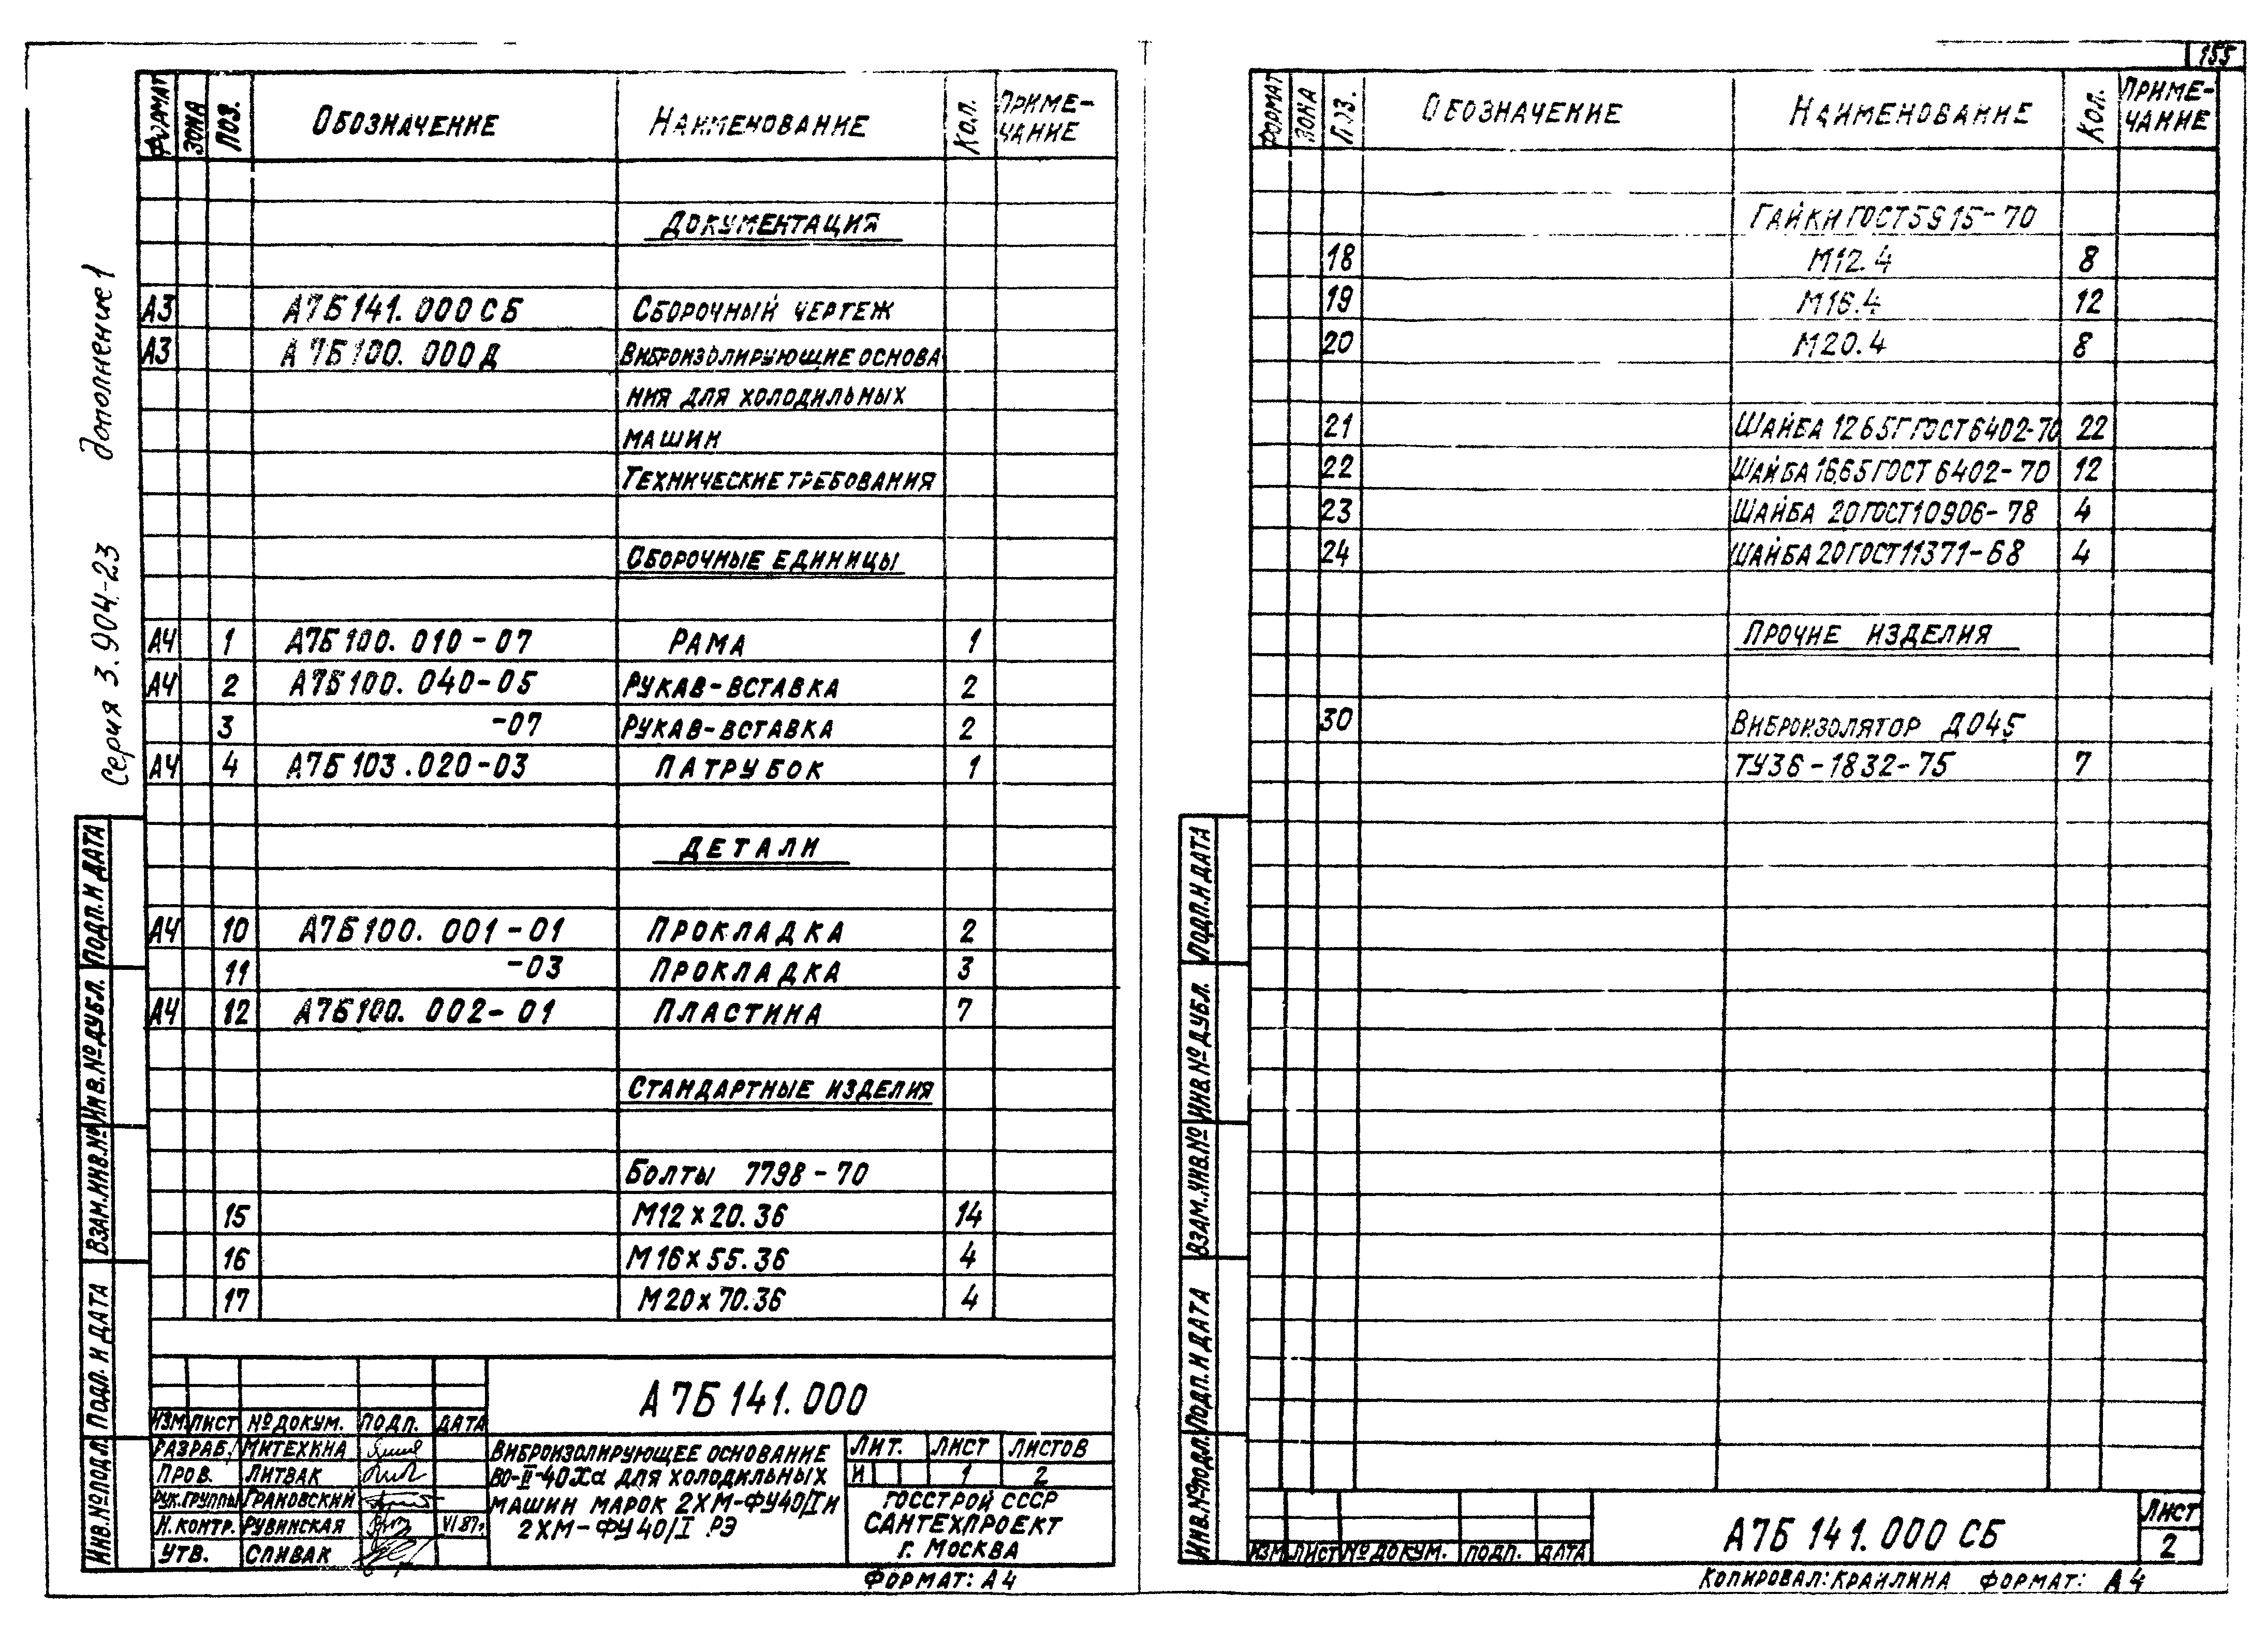 155
Серия 3.904-23 дополнение 1
ФОРМАТ ЗОНА ПОЗ. ОБОЗНАЧЕНИЕ НАИМЕНОВАНИЕ КОЛ. ПРИМЕ-
ЧАНИЕ
ДОКУМЕНТАЦИЯ
А3 А7Б141.000СБ СБОРОЧНЫЙ ЧЕРТЕЖ
А3 А7Б100.000Д ВИБРОИЗОЛИРУЮЩИЕ ОСНОВА
НИЯ ДЛЯ ХОЛОДИЛЬНЫХ
МАШИН
ТЕХНИЧЕСКИЕ ТРЕБОВАНИЯ
СБОРОЧНЫЕ ЕДИНИЦЫ
А4 1 А7Б100.010-07 РАМА 1
А4 2 А7Б100.040-05 РУКАВ-ВСТАВКА 2
3 -07 РУКАВ-ВСТАВКА 2
А4 4 А7Б103.020-03 ПАТРУБОК 1
ДЕТАЛИ
А4 10 А7Б100.001-01 ПРОКЛАДКА 2
11 -03 ПРОКЛАДКА 3
А4 12 А7Б100.002-01 ПЛАСТИНА 7
СТАНДАРТНЫЕ ИЗДЕЛИЯ
БОЛТЫ 7798-70
15 М12×20.36 14
16 М16×55.36 4
17 М20×70.36 4
ИНВ.№ПОДЛ. ПОДП. И ДАТА ВЗАМ.ИНВ.№ ИНВ.№ДУБЛ. ПОДП.И ДАТА
А7Б141.000
ИЗМ ЛИСТ №ДОКУМ. ПОДП. ДАТА
РАЗРАБ. МИТЕХИНА
ПРОВ. ЛИТВАК
РУК.ГРУППЫ ГРАНОВСКИЙ
Н.КОНТР. РУВИНСКАЯ VI.87г
УТВ. СПИВАК
ВИБРОИЗОЛИРУЮЩЕЕ ОСНОВАНИЕ
ВО-II-40Ха ДЛЯ ХОЛОДИЛЬНЫХ
МАШИН МАРОК 2ХМ-ФУ40/I И
2ХМ-ФУ40/I РЭ
ЛИТ. ЛИСТ ЛИСТОВ
И 1 2
ГОССТРОЙ СССР
САНТЕХПРОЕКТ
Г. МОСКВА
ФОРМАТ: А4
ФОРМАТ ЗОНА ПОЗ. ОБОЗНАЧЕНИЕ НАИМЕНОВАНИЕ КОЛ. ПРИМЕ-
ЧАНИЕ
ГАЙКИ ГОСТ5915-70
18 М12.4 8
19 М16.4 12
20 М20.4 8
21 ШАЙБА 12 65Г ГОСТ6402-70 22
22 ШАЙБА 16.65 ГОСТ 6402-70 12
23 ШАЙБА 20 ГОСТ10906-78 4
24 ШАЙБА 20 ГОСТ11371-68 4
ПРОЧИЕ ИЗДЕЛИЯ
30 ВИБРОИЗОЛЯТОР ДО45
ТУ36-1832-75 7
ИНВ.№ПОДЛ. ПОДП. И ДАТА ВЗАМ.ИНВ.№ ИНВ.№ДУБЛ. ПОДП.И ДАТА
ИЗМ ЛИСТ №ДОКУМ. ПОДП. ДАТА
А7Б141.000 СБ
ЛИСТ
2
КОПИРОВАЛ: КРАИЛИНА ФОРМАТ: А4